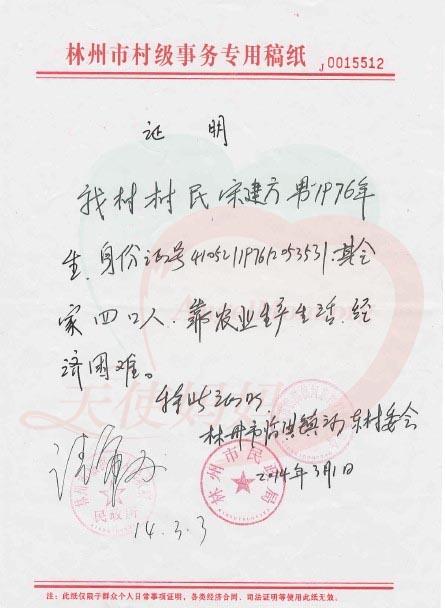 林州市村级事务专用稿纸 J0015512
证明
我村村民宋建方 男 1976年
生.身份证号410521197612053531.其全
家四口人.靠农业生产生活.经
济困难。
特此证明
林州市临淇镇 东村委会
2014年3月1日
林州市民政局
民政所
14.3.3
天使妈妈
注：此纸仅限于群众个人日常事项证明，各类经济合同、司法证明等使用此纸无效。